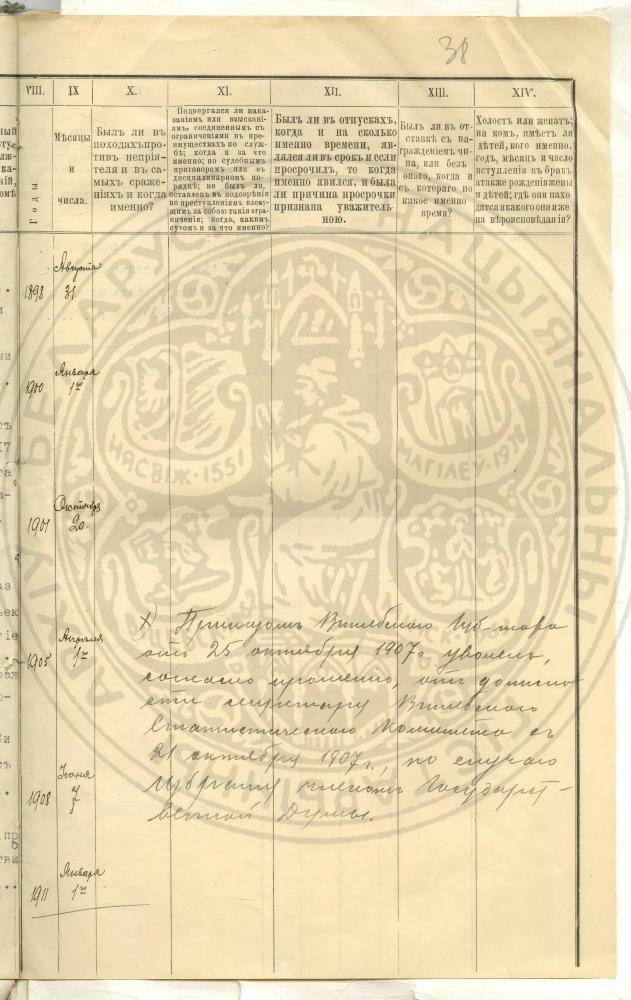 38
VIII.
IX
X.
XI.
XII.
XIII.
XIV.
Годы.
Мѣсяцы
и
числа.
Былъ ли въ
походахъ про-
тивъ непрія-
теля и въ са-
мыхъ сраже-
ніяхъ и когда
именно?
Подвергался ли нака-
заніямъ или взыскані-
ямъ, соединеннымъ съ
ограниченіями въ пре-
имуществахъ по служ-
бѣ; когда и за что
именно; по судебнымъ
приговорамъ или въ
дисциплинарномъ по-
рядкѣ; не былъ ли,
оставленъ въ подозрѣніи
по преступленіямъ влеку-
щимъ за собою такія огра-
ниченія; когда, какимъ
судомъ и за что именно?
Былъ ли въ отпускахъ,
когда и на сколько
именно времени, яв-
лялся ли въ срокъ и если
просрочилъ, то когда
именно явился, и была
ли причина просрочки
признана уважитель-
ною.
Былъ ли въ от-
ставкѣ съ на-
гражденіемъ чи-
на, или безъ
онаго, когда и
съ котораго по
какое именно
время?
Холостъ или женатъ;
на комъ, имѣетъ ли
дѣтей, кого именно.
годъ, мѣсяцъ и число
вступленія въ бракъ
а также рожденія жены
и дѣтей; гдѣ они нахо-
дятся и какого они и же
на вѣроисповѣданія?
1898 Августа 31.
1900 Января 1го
1901 Октября 20.
1905 Апрѣля 1го
1908 Іюня 7
1911 Января 1го
х) Приказомъ Витебскаго Губ-тора
отъ 25 октября 1907 г. уволенъ,
согласно прошенію, отъ должно-
сти секретаря Витебскаго
Статистическаго Комитета съ
21 октября 1907 г., по случаю
избранія членомъ Государст-
венной Думы.
НЯСВІЖ·1551
МАГІЛЕЎ·19